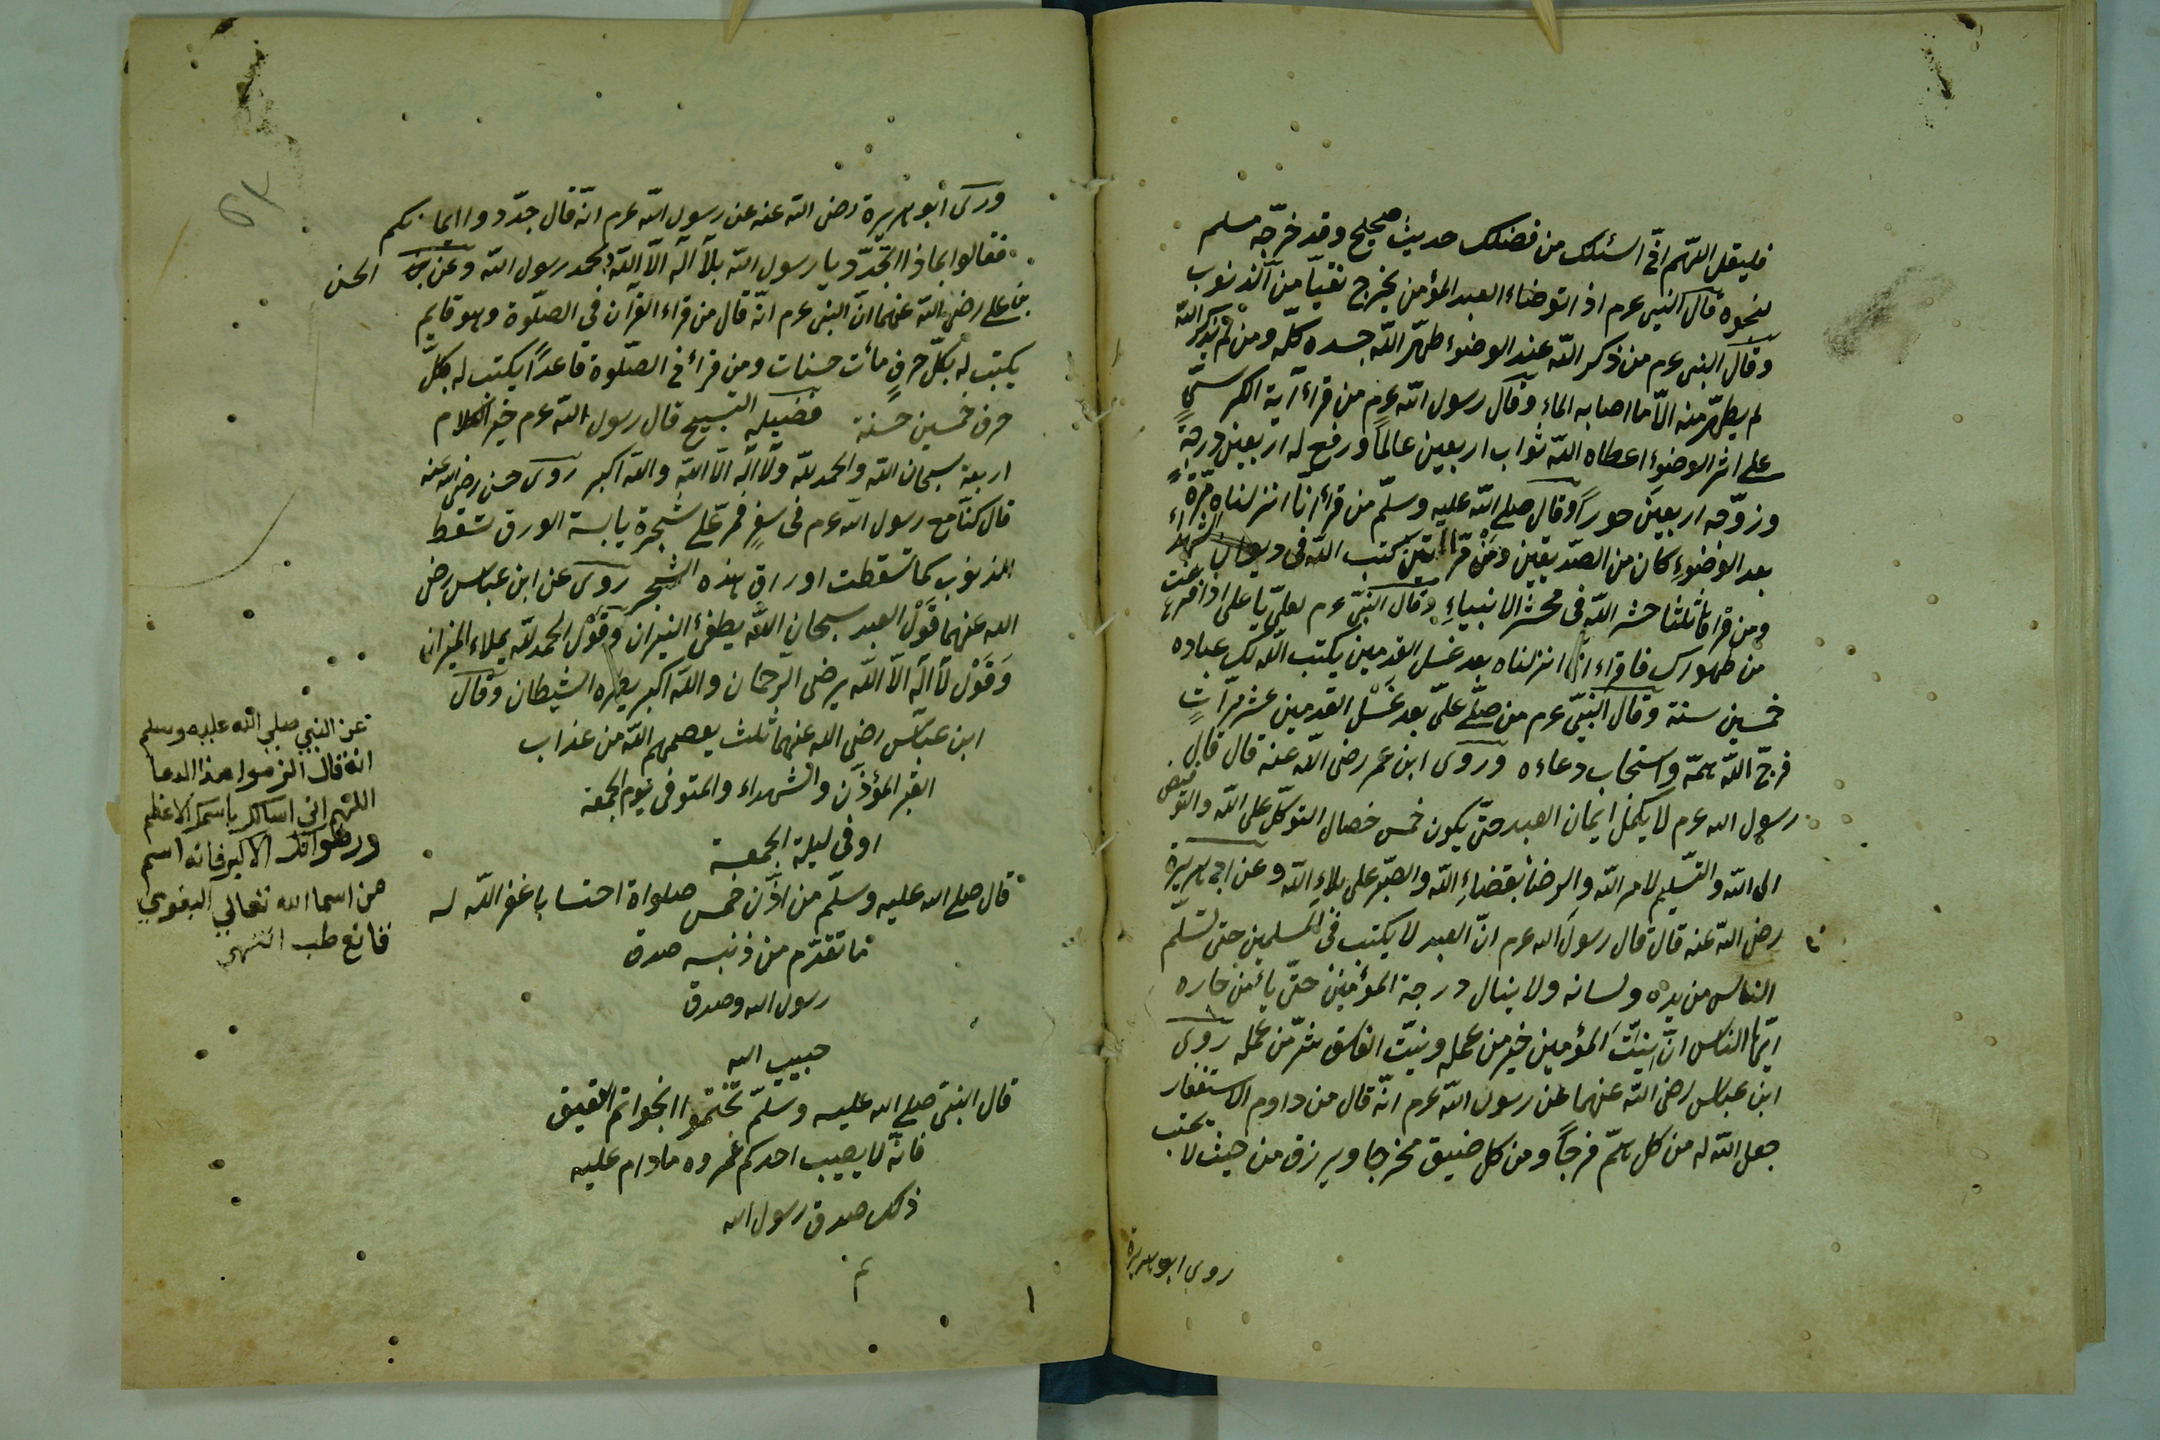 فليقل اللّهم انّى اسئلك من فضلك حديث صحيح وقد خرّجه مسلم
بنحوه قال النبى عم اذا توضاء العبد المؤمن يخرج نقيّا من الذنوب
وقال النبى عم من ذكر اللّه عند الوضوء طهّر اللّه جسده كلّه ومن لم يذكر اللّه
لم يطهّر منه الّا ما اصابه الماء وقال رسول اللّه عم من قراء آية الكرسىّ
على اثر الوضوء اعطاه اللّه ثواب اربعين عالمًا ورفع له اربعين درجة
وزوّجه اربعين حورًا وقال صلى اللّه عليه وسلّم من قرأ انّا انزلناه مرّة
بعد الوضوء كان من الصّديقين ومن قرأ مرّتين كتب اللّه فى ديوان الشهداء
ومن قرأ ثلثا حشر اللّه فى محشر الانبياء وقال النبىّ عم لعلىّ يا على اذا فرغت
من طهورك فاقراء انّا انزلناه بعد غسل القدمين يكتب اللّه لك عباده
خمسين سنة وقال النبىّ عم من صلّى علىّ بعد غسل القدمين عشر مرّات
فرج اللّه همّه واستجاب دعاءه وروى ابن عمر رضى اللّه عنه قال قال
رسول الله عم لا يكمل ايمان العبد حتّى يكون خمس خصال التوكّل على اللّه والتفويض
الى اللّه والتّسليم لامر اللّه والرضا بقضاء اللّه والصّبر على بلاء اللّه وعن ابى هريرة
رضى اللّه عنه قال قال رسول الله عم انّ العبد لا يكتب فى المسلمين حتى تسلّم
الناس من يده ولسانه ولا ينال درجة المؤمنين حتّى يأمن جاره
ايّها الناس انّ نيّت المؤمنين خير من عمله ونيّت الفاسق شرّ من عمله روى
ابن عباس رضى اللّه عنهما عن رسول اللّه عم انّه قال من داوم الاستغفار
جعل اللّه له من كل همّ فرجًا ومن كل ضيق مخرجا ويرزق من حيث لا يحتسب
روى ابو هريرة
وروى ابو هريرة رضى اللّه عنه عن رسول اللّه عم انّه قال جدّدوا ايمانكم
فقالوا بماذا نجدّد يا رسول اللّه بلا اله الّا اللّه محمد رسول اللّه وعن الحسن
بن على رضى اللّه عنهما انّ النبى عم انّه قال من قراء القرآن فى الصلوة وهو قايم
يكتب له بكلّ حرف مأت حسنات ومن قرأ فى الصّلوة قاعدًا يكتب له بكلّ
حرف خمسين حسنة فضيلة التسبيح قال رسول اللّه عم خير الكلام
اربعة سبحان اللّه والحمد للّه ولا اله الّا اللّه واللّه اكبر روى حسن رضى الله عنه
قال كنّا مع رسول اللّه عم فى سفر فمرّ على شجرة يابسة الورق تسقط
الذنوب كما تسقطت اوراق هذه الشجر روى عن ابن عباس رضى
الله عنهما قول العبد سبحان اللّه يطفئ النيران وقول الحمد للّه يملاء الميزان
وقول لا اله الّا اللّه يرضى الرّحمان واللّه اكبر يطرد الشيطان وقال
ابن عبّاس رضى الله عنهما ثلث يعصمهم اللّه من عذاب
القبر المؤذّن والشهداء والمتوفى يوم الجمعة
او فى ليلة الجمعة
قال صلى الله عليه وسلّم من اذّن خمس صلواة احتسابا غفر اللّه له
ما تقدّم من ذنبه صدق
رسول الله وصدق
حبيب الله
قال النبىّ صلى الله عليه وسلّم تختّموا بخواتم العقيق
فانّه لا يصيب احدكم غم مادام عليه
ذلك صدق رسول الله
م
عن النبي صلي الله عليه وسلم
انه قال الزموا هذا الدعا
اللهم اني اسالك باسمك الاعظم
ورضوانك الاكبر فانه اسم
من اسما الله تعالي البغوي
قانع طب انتهي